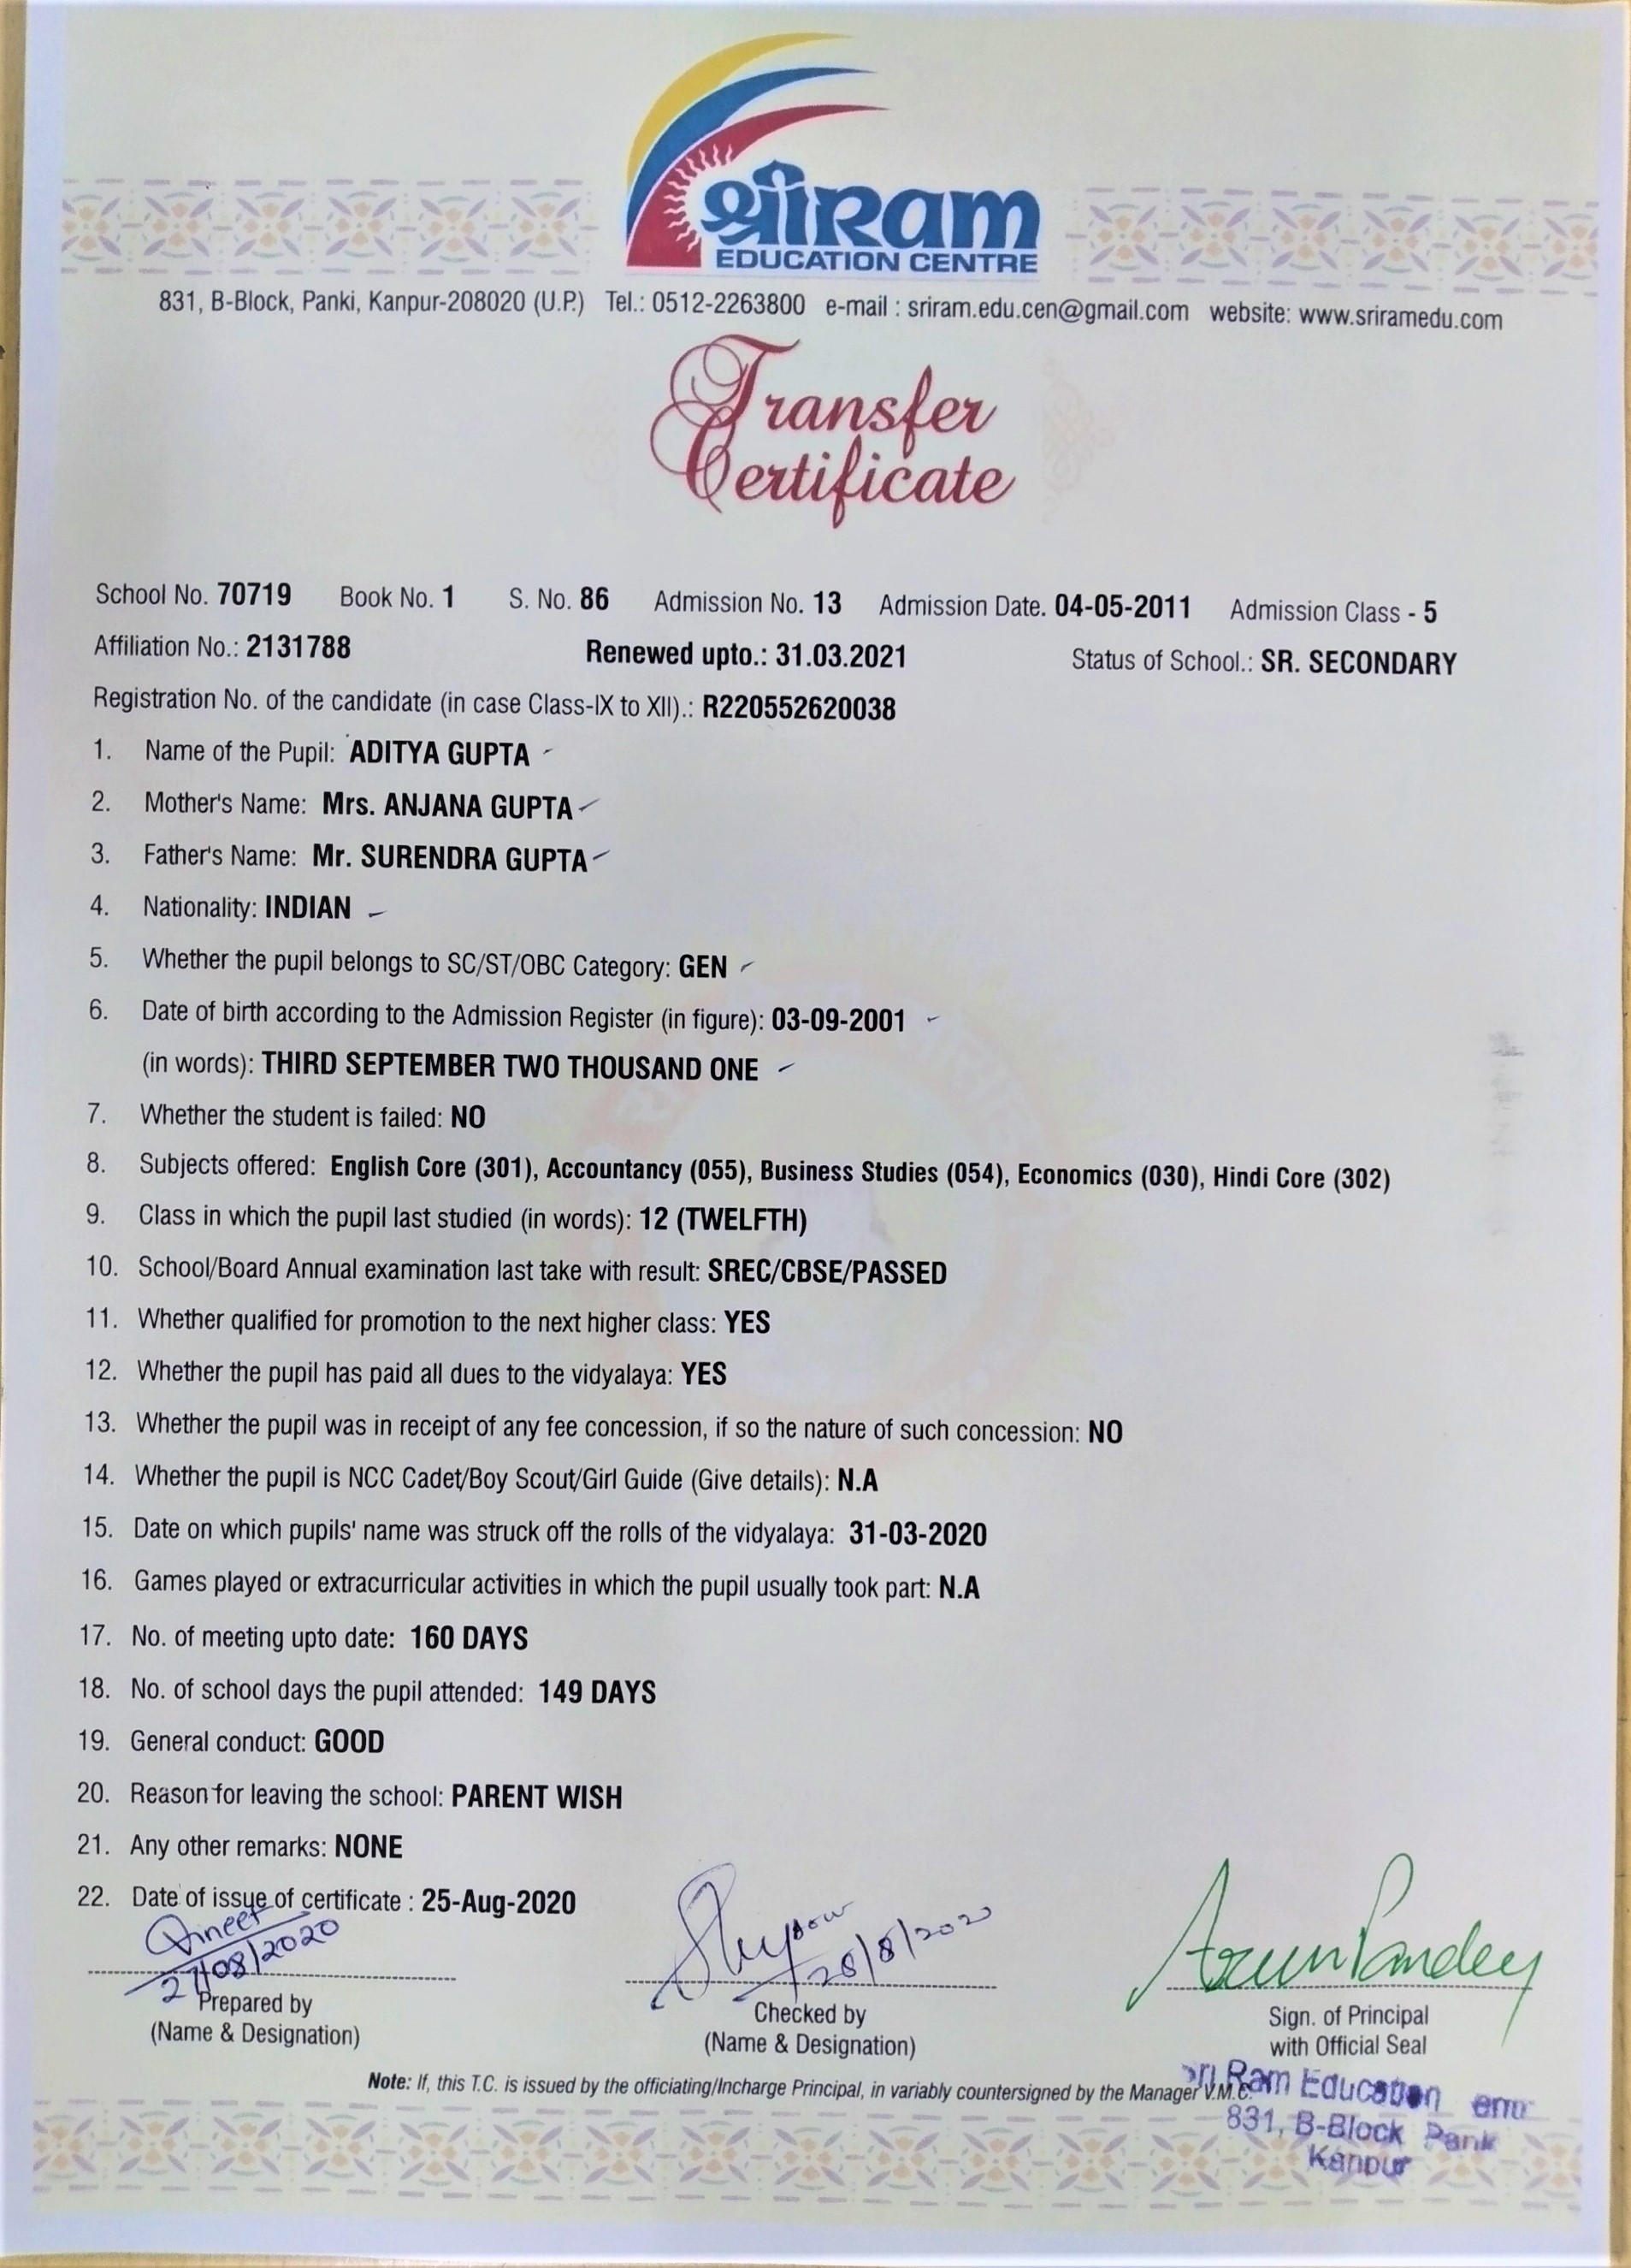 श्रीRam
EDUCATION CENTRE
831, B-Block, Panki, Kanpur-208020 (U.P.) Tel.: 0512-2263800 e-mail : sriram.edu.cen@gmail.com website: www.sriramedu.com
Transfer
Certificate
School No. 70719 Book No. 1 S. No. 86 Admission No. 13 Admission Date. 04-05-2011 Admission Class - 5
Affiliation No.: 2131788 Renewed upto.: 31.03.2021 Status of School.: SR. SECONDARY
Registration No. of the candidate (in case Class-IX to XII).: R220552620038
1. Name of the Pupil: ADITYA GUPTA
2. Mother's Name: Mrs. ANJANA GUPTA
3. Father's Name: Mr. SURENDRA GUPTA
4. Nationality: INDIAN
5. Whether the pupil belongs to SC/ST/OBC Category: GEN
6. Date of birth according to the Admission Register (in figure): 03-09-2001
(in words): THIRD SEPTEMBER TWO THOUSAND ONE
7. Whether the student is failed: NO
8. Subjects offered: English Core (301), Accountancy (055), Business Studies (054), Economics (030), Hindi Core (302)
9. Class in which the pupil last studied (in words): 12 (TWELFTH)
10. School/Board Annual examination last take with result: SREC/CBSE/PASSED
11. Whether qualified for promotion to the next higher class: YES
12. Whether the pupil has paid all dues to the vidyalaya: YES
13. Whether the pupil was in receipt of any fee concession, if so the nature of such concession: NO
14. Whether the pupil is NCC Cadet/Boy Scout/Girl Guide (Give details): N.A
15. Date on which pupils' name was struck off the rolls of the vidyalaya: 31-03-2020
16. Games played or extracurricular activities in which the pupil usually took part: N.A
17. No. of meeting upto date: 160 DAYS
18. No. of school days the pupil attended: 149 DAYS
19. General conduct: GOOD
20. Reason for leaving the school: PARENT WISH
21. Any other remarks: NONE
22. Date of issue of certificate : 25-Aug-2020
Arun Pandey
Prepared by Checked by Sign. of Principal
(Name & Designation) (Name & Designation) with Official Seal
Note: If, this T.C. is issued by the officiating/Incharge Principal, in variably countersigned by the Manager V.M.C.
Ram Education
831, B-Block
Kanpur